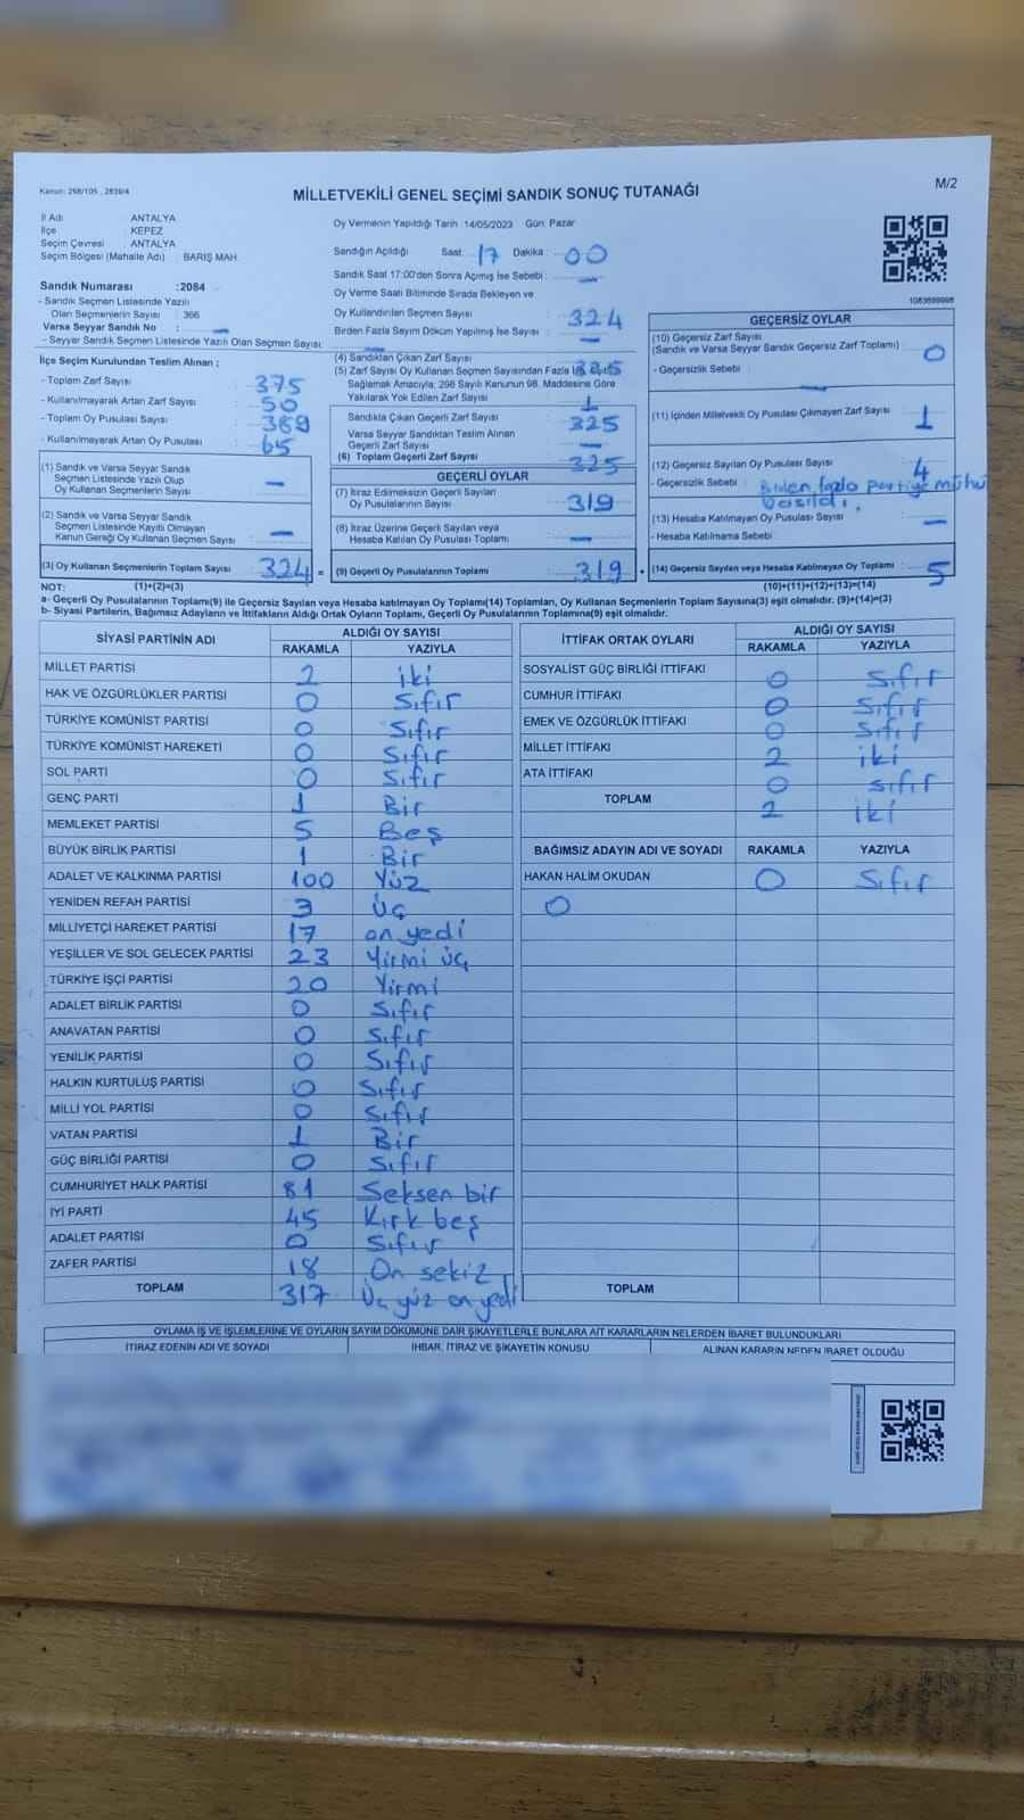 Kanun: 298/105 , 2839/4
MİLLETVEKİLİ GENEL SEÇİMİ SANDIK SONUÇ TUTANAĞI
M/2
İl Adı ANTALYA
İlçe KEPEZ
Seçim Çevresi ANTALYA
Seçim Bölgesi (Mahalle Adı) BARIŞ MAH
Sandık Numarası :2084
- Sandık Seçmen Listesinde Yazılı
Olan Seçmenlerin Sayısı : 366
Varsa Seyyar Sandık No : -
- Seyyar Sandık Seçmen Listesinde Yazılı Olan Seçmen Sayısı:
Oy Vermenin Yapıldığı Tarih :14/05/2023 Gün: Pazar
Sandığın Açıldığı Saat: 17 Dakika : 00
Sandık Saat 17:00'den Sonra Açılmış İse Sebebi : -
Oy Verme Saati Bitiminde Sırada Bekleyen ve
Oy Kullandırılan Seçmen Sayısı : 324
Birden Fazla Sayım Döküm Yapılmış İse Sayısı : -
İlçe Seçim Kurulundan Teslim Alınan ;
- Toplam Zarf Sayısı : 375
- Kullanılmayarak Artan Zarf Sayısı : 50
- Toplam Oy Pusulası Sayısı : 389
- Kullanılmayarak Artan Oy Pusulası : 65
(1) Sandık ve Varsa Seyyar Sandık
Seçmen Listesinde Yazılı Olup
Oy Kullanan Seçmenlerin Sayısı : -
(2) Sandık ve Varsa Seyyar Sandık
Seçmen Listesinde Kayıtlı Olmayan
Kanun Gereği Oy Kullanan Seçmen Sayısı : -
(3) Oy Kullanan Seçmenlerin Toplam Sayısı : 324 =
(4) Sandıktan Çıkan Zarf Sayısı
(5) Zarf Sayısı Oy Kullanan Seçmen Sayısından Fazla
Sağlamak Amacıyla; 298 Sayılı Kanunun 98. Maddesine Göre
Yakılarak Yok Edilen Zarf Sayısı : 1
Sandıkta Çıkan Geçerli Zarf Sayısı : 325
Varsa Seyyar Sandıktan Teslim Alınan
Geçerli Zarf Sayısı : -
(6) Toplam Geçerli Zarf Sayısı : 325
GEÇERLİ OYLAR
(7) İtiraz Edilmeksizin Geçerli Sayılan
Oy Pusulalarının Sayısı : 319
(8) İtiraz Üzerine Geçerli Sayılan veya
Hesaba Katılan Oy Pusulası Toplamı : -
(9) Geçerli Oy Pusulalarının Toplamı : 319 +
1083699998
GEÇERSİZ OYLAR
(10) Geçersiz Zarf Sayısı
(Sandık ve Varsa Seyyar Sandık Geçersiz Zarf Toplamı) : 0
- Geçersizlik Sebebi : -
(11) İçinden Milletvekili Oy Pusulası Çıkmayan Zarf Sayısı : 1
(12) Geçersiz Sayılan Oy Pusulası Sayısı : 4
- Geçersizlik Sebebi : Birden fazla partiye mühür
basıldı.
(13) Hesaba Katılmayan Oy Pusulası Sayısı : -
- Hesaba Katılmama Sebebi
(14) Geçersiz Sayılan veya Hesaba Katılmayan Oy Toplamı : 5
NOT: (1)+(2)=(3) (10)+(11)+(12)+(13)=(14)
a- Geçerli Oy Pusulalarının Toplamı(9) ile Geçersiz Sayılan veya Hesaba katılmayan Oy Toplamı(14) Toplamları, Oy Kullanan Seçmenlerin Toplam Sayısına(3) eşit olmalıdır. (9)+(14)=(3)
b- Siyasi Partilerin, Bağımsız Adayların ve İttifakların Aldığı Ortak Oyların Toplamı, Geçerli Oy Pusulalarının Toplamına(9) eşit olmalıdır.
SİYASİ PARTİNİN ADI ALDIĞI OY SAYISI
RAKAMLA YAZIYLA
MİLLET PARTİSİ 2 iki
HAK VE ÖZGÜRLÜKLER PARTİSİ 0 Sıfır
TÜRKİYE KOMÜNİST PARTİSİ 0 Sıfır
TÜRKİYE KOMÜNİST HAREKETİ 0 Sıfır
SOL PARTİ 0 Sıfır
GENÇ PARTİ 1 Bir
MEMLEKET PARTİSİ 5 Beş
BÜYÜK BİRLİK PARTİSİ 1 Bir
ADALET VE KALKINMA PARTİSİ 100 Yüz
YENİDEN REFAH PARTİSİ 3 üç
MİLLİYETÇİ HAREKET PARTİSİ 17 on yedi
YEŞİLLER VE SOL GELECEK PARTİSİ 23 Yirmi üç
TÜRKİYE İŞÇİ PARTİSİ 20 Yirmi
ADALET BİRLİK PARTİSİ 0 Sıfır
ANAVATAN PARTİSİ 0 Sıfır
YENİLİK PARTİSİ 0 Sıfır
HALKIN KURTULUŞ PARTİSİ 0 Sıfır
MİLLİ YOL PARTİSİ 0 Sıfır
VATAN PARTİSİ 1 Bir
GÜÇ BİRLİĞİ PARTİSİ 0 Sıfır
CUMHURİYET HALK PARTİSİ 81 Seksen bir
İYİ PARTİ 45 Kırk beş
ADALET PARTİSİ 0 Sıfır
ZAFER PARTİSİ 18 On sekiz
TOPLAM 317 Üç yüz on yedi
İTTİFAK ORTAK OYLARI ALDIĞI OY SAYISI
RAKAMLA YAZIYLA
SOSYALİST GÜÇ BİRLİĞİ İTTİFAKI 0 Sıfır
CUMHUR İTTİFAKI 0 Sıfır
EMEK VE ÖZGÜRLÜK İTTİFAKI 0 Sıfır
MİLLET İTTİFAKI 2 iki
ATA İTTİFAKI 0 sıfır
TOPLAM 2 iki
BAĞIMSIZ ADAYIN ADI VE SOYADI RAKAMLA YAZIYLA
HAKAN HALİM OKUDAN 0 Sıfır
0
TOPLAM
OYLAMA İŞ VE İŞLEMLERİNE VE OYLARIN SAYIM DÖKÜMÜNE DAİR ŞİKAYETLERLE BUNLARA AİT KARARLARIN NELERDEN İBARET BULUNDUKLARI
İTİRAZ EDENİN ADI VE SOYADI İHBAR, İTİRAZ VE ŞİKAYETİN KONUSU ALINAN KARARIN NEDEN İBARET OLDUĞU